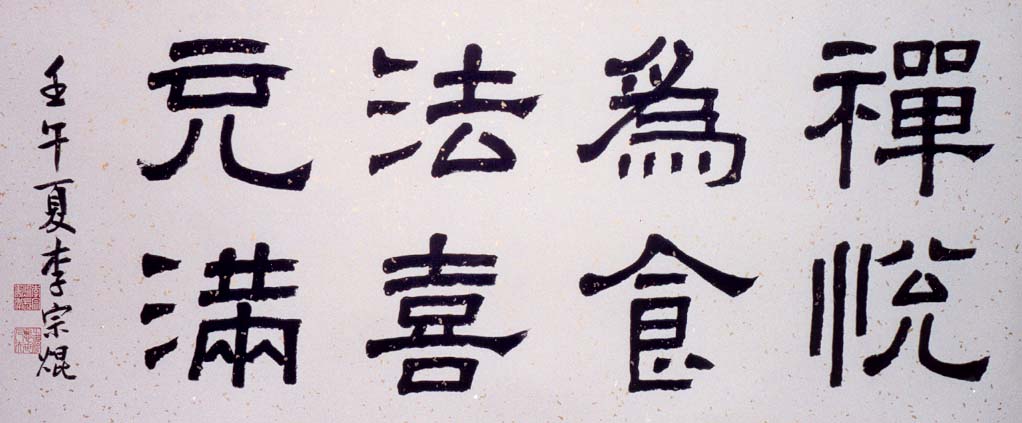 禪悅
爲食
法喜
充滿
壬午夏李宗焜